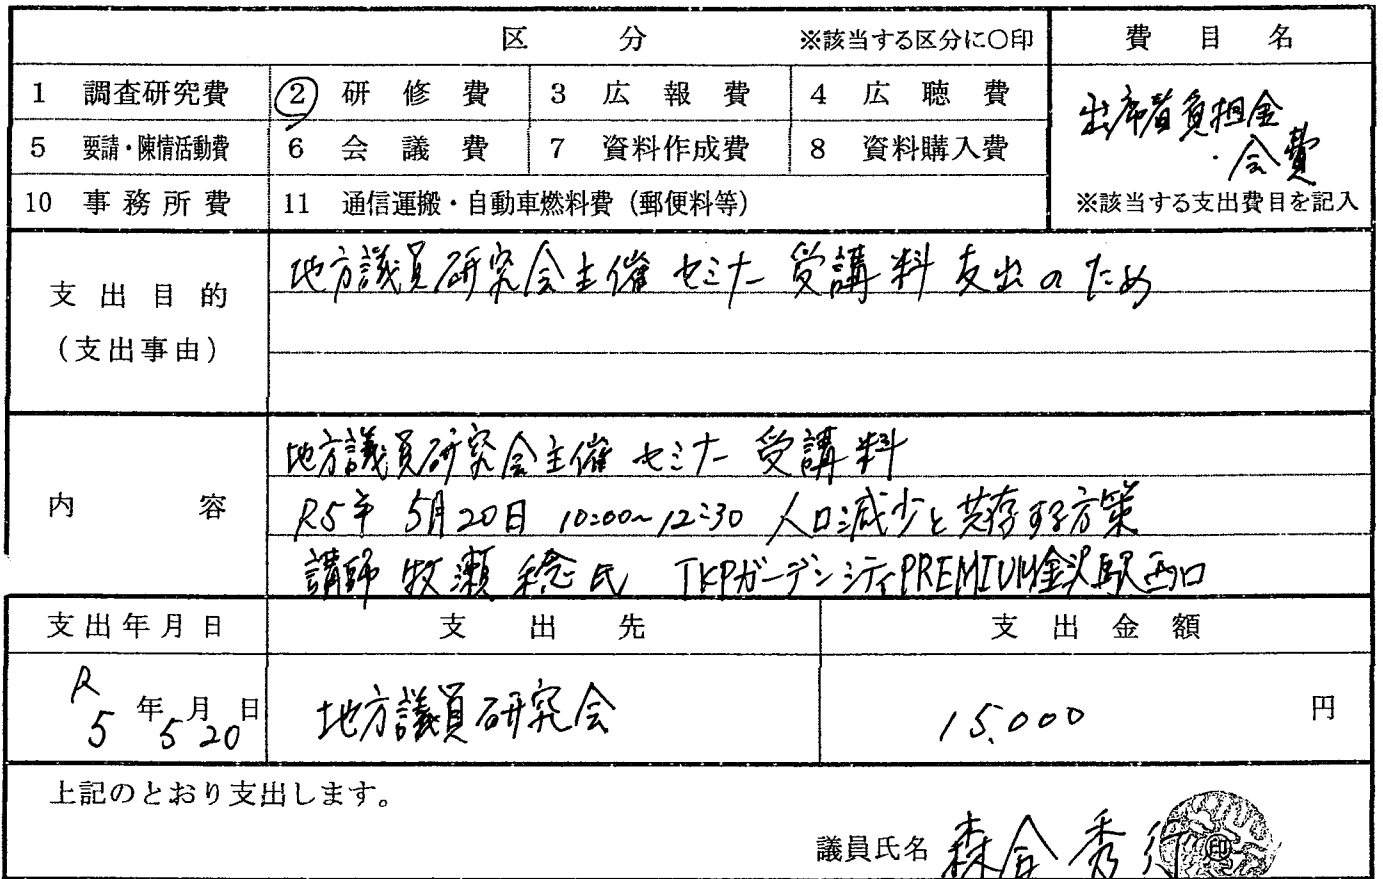 区 分 ※該当する区分に○印 費 目 名
1 調査研究費 ② 研 修 費 3 広 報 費 4 広 聴 費
出席者負担金
・会費
5 要請・陳情活動費 6 会 議 費 7 資料作成費 8 資料購入費
10 事 務 所 費 11 通信運搬・自動車燃料費（郵便料等） ※該当する支出費目を記入
支 出 目 的
（支出事由）
地方議員研究会主催 セミナー 受講料 支出のため
内 容
地方議員研究会主催 セミナー 受講料
R5年 5月20日 10:00~12:30 人口減少と共存する方策
講師 牧瀬 稔氏 TKPガーデンシティPREMIUM金沢駅西口
支出年月日 支 出 先 支 出 金 額
R5年5月20日 地方議員研究会 15,000 円
上記のとおり支出します。
議員氏名 森合秀行 印